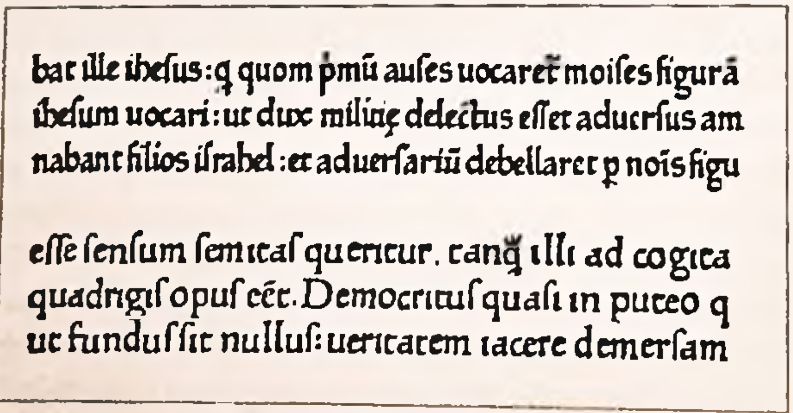 bat ille ihesus: q̄ quom pͥmū auſes uocaret̄ moiſes figurā
iheſum uocari: ut dux militię delectus eſſet aduerſus am
nabant filios iſrahel: et aduerſariū debellaret ꝑ noīs figu
eſſe ſenſum ſemitaſ queritur. tanq̄ illi ad cogita
quadrigiſ opuſ eēt. Democrituſ quaſi in puteo q
ut funduſ ſit nulluſ: ueritatem iacere demerſam